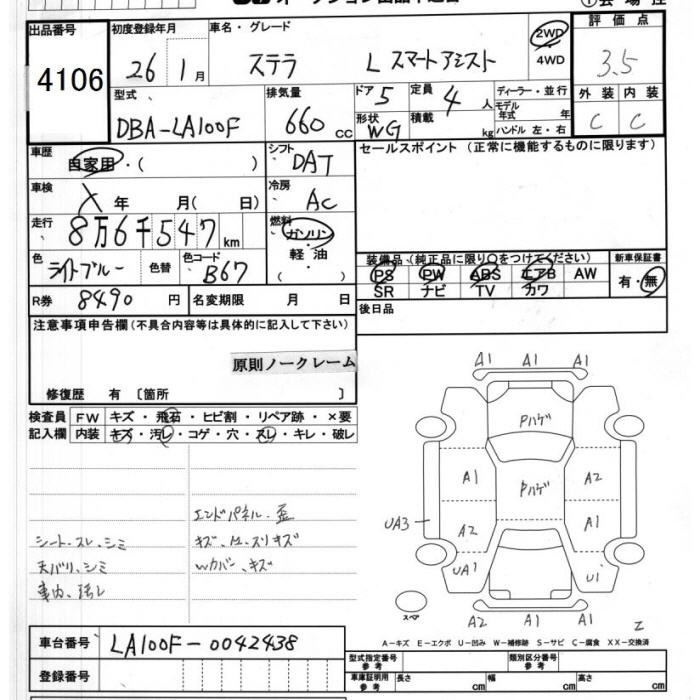 出品番号
4106
初度登録年月
26年 1月
車名・グレード
ステラ L スマートアシスト
2WD
4WD
評価点
3.5
外装 内装
C C
型式
DBA-LA100F
排気量
660 cc
ドア 5
形状 WG
定員 4 人
積載 kg
ディーラー・並行
モデル年式 年
ハンドル 左・右
車歴
自家用・( )
シフト
DAT
セールスポイント (正常に機能するものに限ります)
車検
X 年 月( 日)
冷房
AC
走行
8万6千547km
燃料
ガソリン
軽油
( )
色
ライトブルー
色替
色コード
B67
装備品 (純正品に限り○をつけてください)
PS PW ABS エアB AW
SR ナビ TV カワ
新車保証書
有・無
R券 8490 円
名変期限 月 日
後日品
注意事項申告欄(不具合内容等は具体的に記入して下さい)
原則ノークレーム
修復歴 有 〔箇所 〕
検査員
記入欄
FW キズ・飛石・ヒビ割・リペア跡・×要
内装 キズ・汚レ・コゲ・穴・スレ・キレ・破レ
エンドパネル・歪
シート・スレ、シミ
天バリ、シミ
車内、汚レ
Wカバー、キズ
A1 A1 A1
Pハゲ
A1 Pハゲ A2
UA3 A2 A1
UA1 U1
スペア
A2 A1 A1
A-キズ E-エクボ U-凹み W-補修跡 S-サビ C-腐食 XX-交換済
車台番号
LA100F-0042438
登録番号
型式指定番号
参考
類別区分番号
参考
車庫証明用
参考
長さ cm 幅 cm 高さ cm